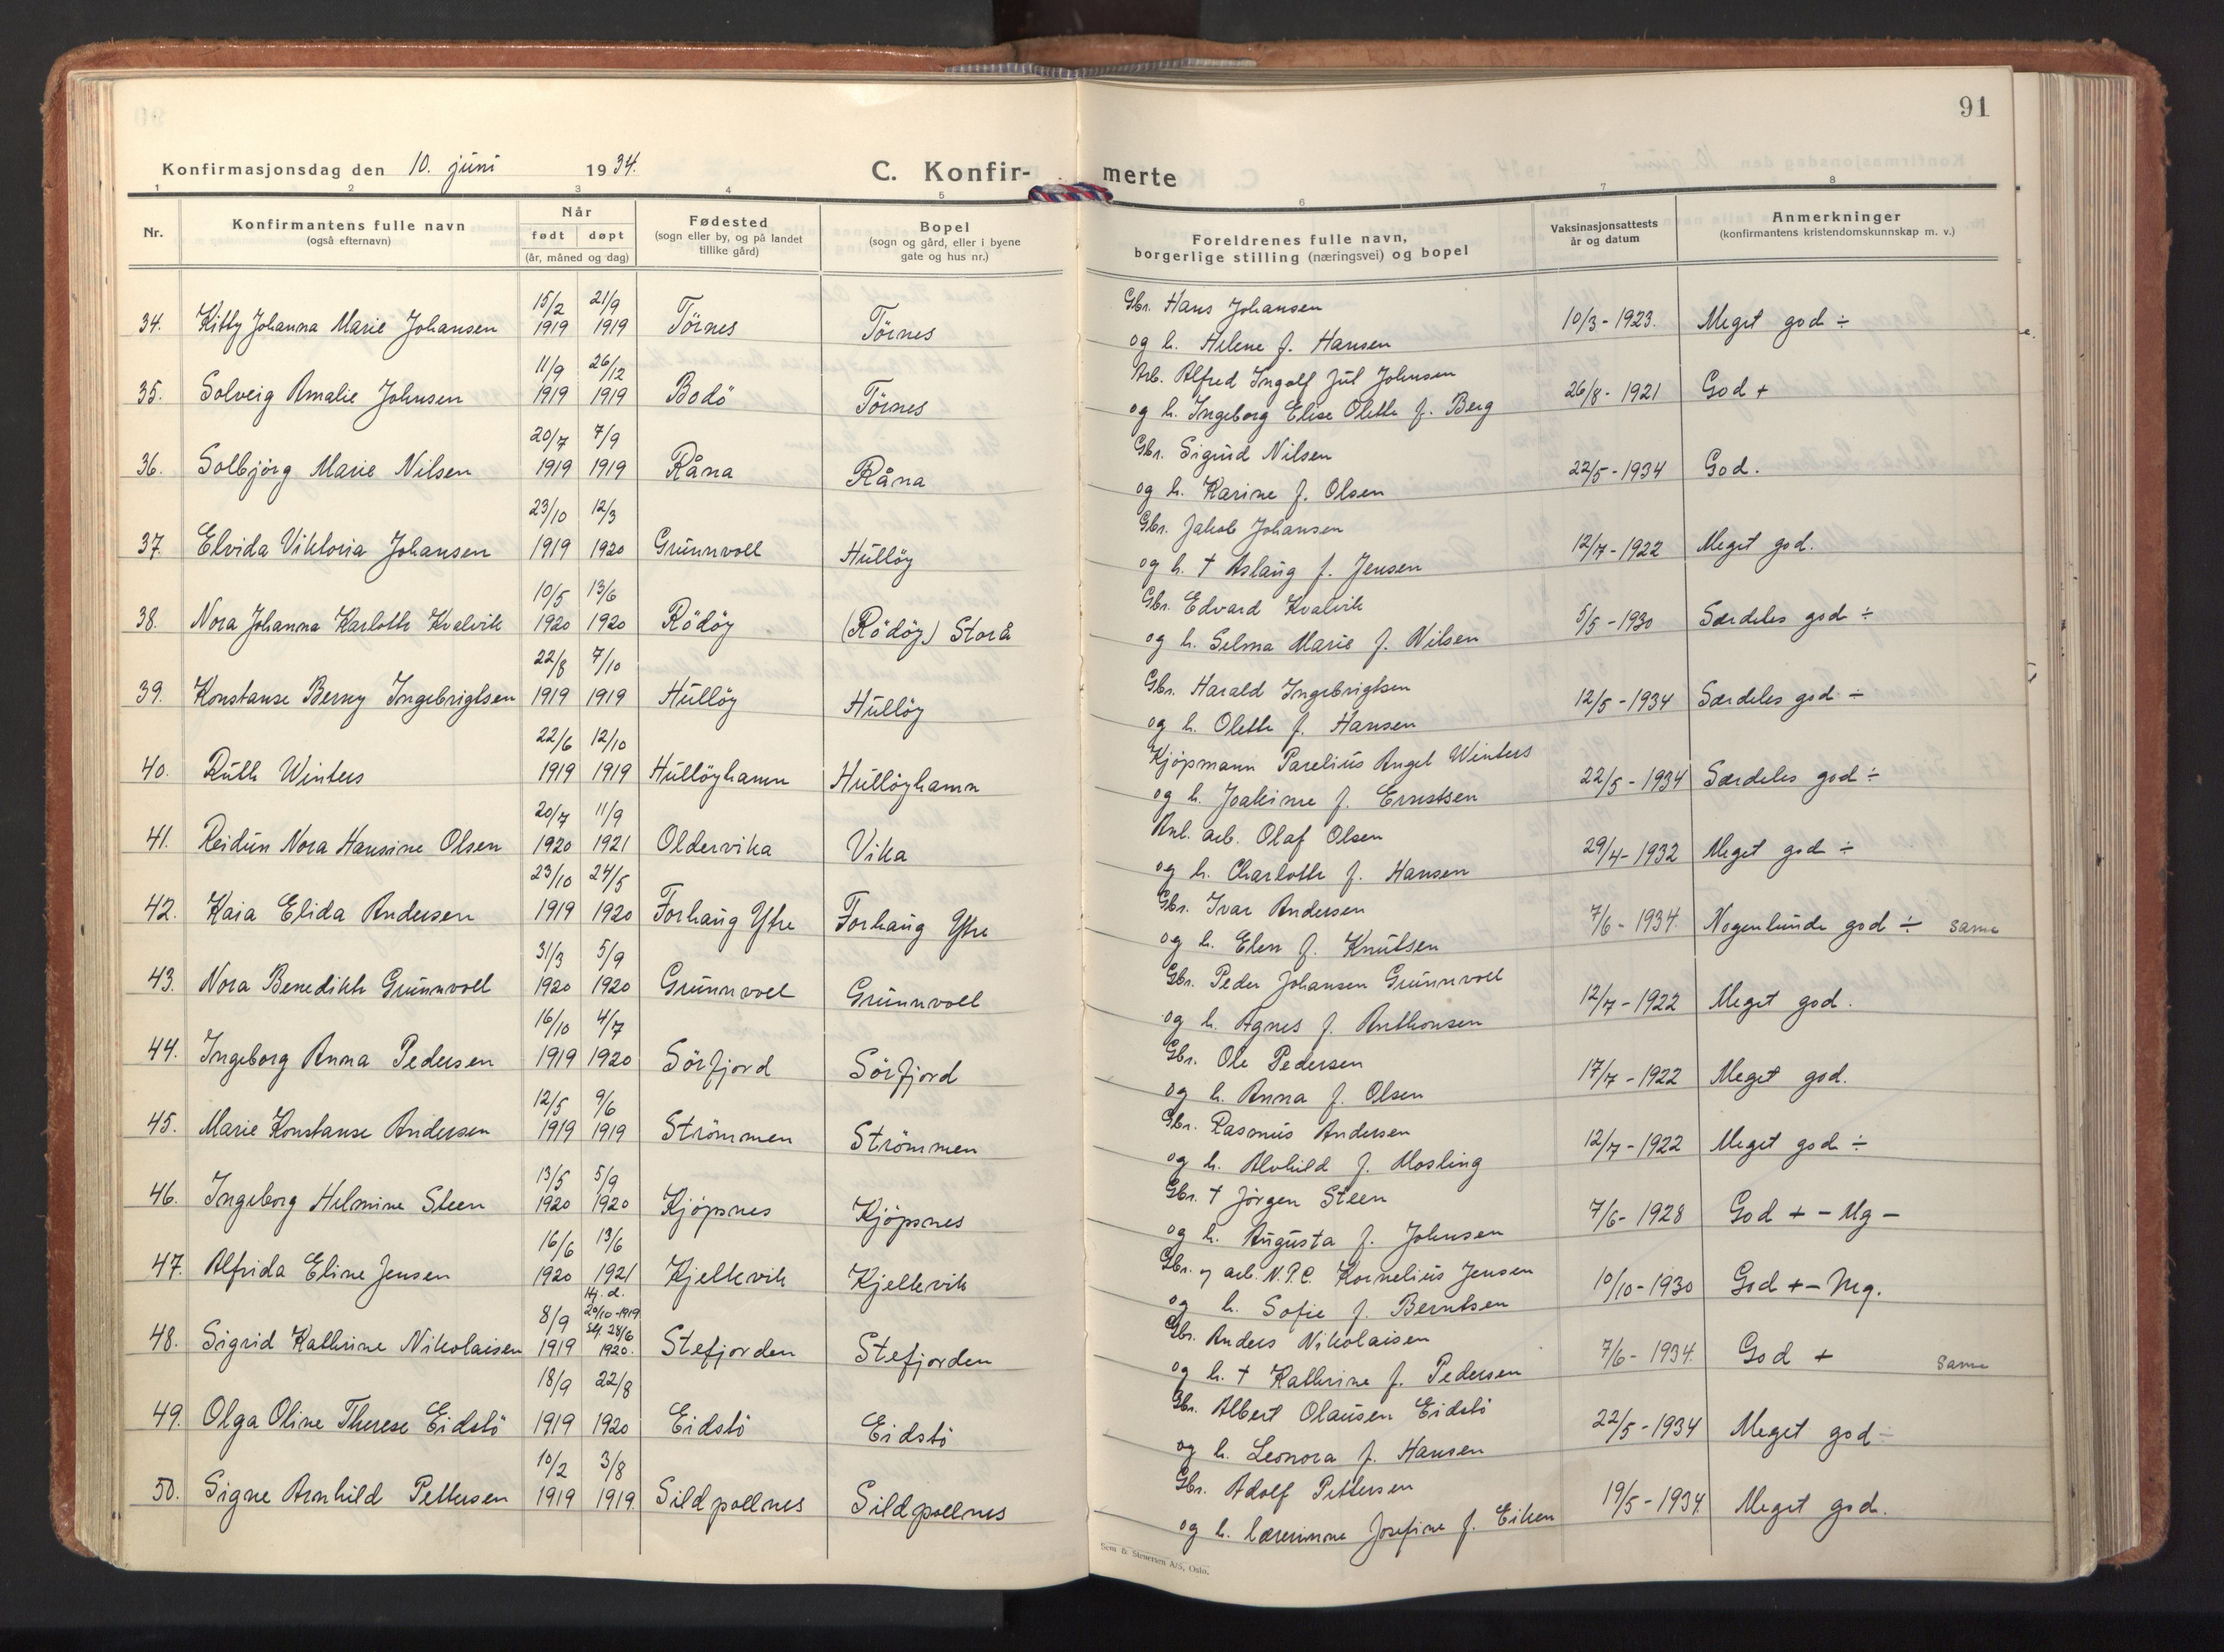 91
Konfirmasjonsdag den 10. juni 1934. C. Konfir- merte
1 2 3 4 5 6 7 8
Nr. Konfirmantens fulle navn (også efternavn) Når født døpt (år, måned og dag) Fødested (sogn eller by, og på landet tillike gård) Bopel (sogn og gård, eller i byene gate og hus nr.) Foreldrenes fulle navn, borgerlige stilling (næringsvei) og bopel Vaksinasjonsattests år og datum Anmerkninger (konfirmantens kristendomskunnskap m. v.)
15/2 21/9 Gbr. Hans Johansen
34. Kitty Johanna Marie Johansen 1919 1919 Törnes Törnes og h. Helene f. Hansen 10/3-1923. Meget god ÷
11/9 26/12 Arb. Alfred Ingolf Jul Johnsen
35. Solveig Amalie Johnsen 1919 1919 Bodö Törnes og h. Ingeborg Elise Olette f. Berg 26/8-1921 God +
20/7 7/9 Gbr. Sigurd Nilsen
36. Solbjörg Marie Nilsen 1919 1919 Råna Råna og h. Karine f. Olsen 22/5-1934 God.
23/10 12/3 Gbr. Jakob Johansen
37. Elvida Viktoria Johansen 1919 1920 Grunnvoll Hulløy og h. † Aslaug f. Jensen 12/7-1922 Meget god.
10/5 13/6 Gbr. Edvard Kvalvik
38. Nora Johanna Karlotte Kvalvik 1920 1920 Rödöy (Rödöy) Storå og h. Selma Marie f. Nilsen 5/5-1930 Særdeles god ÷
22/8 7/10 Gbr. Harald Ingebrigtsen
39. Konstanse Berny Ingebrigtsen 1919 1919 Hullöy Hullöy og h. Olette f. Hansen 12/5-1934 Særdeles god ÷
22/6 12/10 Kjöpmann Parelius Angel Winters
40. Ruth Winters 1919 1919 Hullöyhamn Hullöyhamn og h. Joakime f. Ernstsen 22/5-1934 Særdeles god ÷
20/7 11/9 Anl. arb. Olaf Olsen
41. Reidun Nora Hansine Olsen 1920 1921 Oldervika Vika og h. Charlotte f. Hansen 29/4-1932 Meget god ÷
23/10 24/5 Gbr. Ivar Andersen
42. Kaia Elida Andersen 1919 1920 Forhaug Ytre Forhaug Ytre og h. Elen f. Knutsen 7/6-1934. Nogenlunde god ÷ same
31/3 5/9 Gbr. Peder Johansen Grunnvoll
43. Nora Benedikte Grunnvoll 1920 1920 Grunnvoll Grunnvoll og h. Agnes f. Anthonsen 12/7-1922 Meget god.
16/10 4/7 Gbr. Ole Pedersen
44. Ingeborg Anna Pedersen 1919 1920 Sörfjord Sörfjord og h. Anna f. Olsen 17/7-1922 Meget god.
12/5 9/6 Gbr. Rasmus Andersen
45. Marie Konstanse Andersen 1919 1919 Strömmen Strömmen og h. Alvhild f. Mosling 12/7-1922 Meget god ÷
13/5 5/9 Gbr. † Jörgen Steen
46. Ingeborg Helmine Steen 1920 1920 Kjöpsnes Kjöpsnes og h. Augusta f. Johnsen 7/6-1928 God + - Mg -
16/6 13/6 Gbr. og arb. N.P.C. Kornelius Jensen
47. Alfrida Eline Jensen 1920 1921 Kjellevik Kjellevik og h. Sofie f. Berntsen 10/10-1930 God + - Mg.
8/9 Hj. d. 20/10-1919 Gbr. Anders Nikolaisen
48. Sigrid Kathrine Nikolaisen 1919 28/6 1920. Stefjorden Stefjorden og h. † Kathrine f. Pedersen 7/6-1934. God + same
18/9 22/8 Gbr. Albert Olausen Eidstö
49. Olga Oline Therese Eidstö 1919 1920 Eidstö Eidstö og h. Leonora f. Hansen 22/5-1934 Meget god -
10/2 3/8 Gbr. Adolf Pettersen
50. Signe Arnhild Pettersen 1919 1919. Sildpollnes Sildpollnes og h. lærerinne Josefine f. Eiken 19/5-1934. Meget god.
Sem & Stenersen A/S, Oslo.